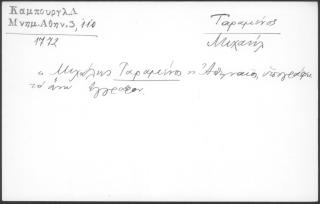 Καμπουργλ.Α
Μνημ.Αθην.3, 110
1772
Ταραμίνος
Μιχαήλ
ο Μιχάλης Ταραμίνος ο Αθηναίος υπογράφει
το άνω έγγραφον.